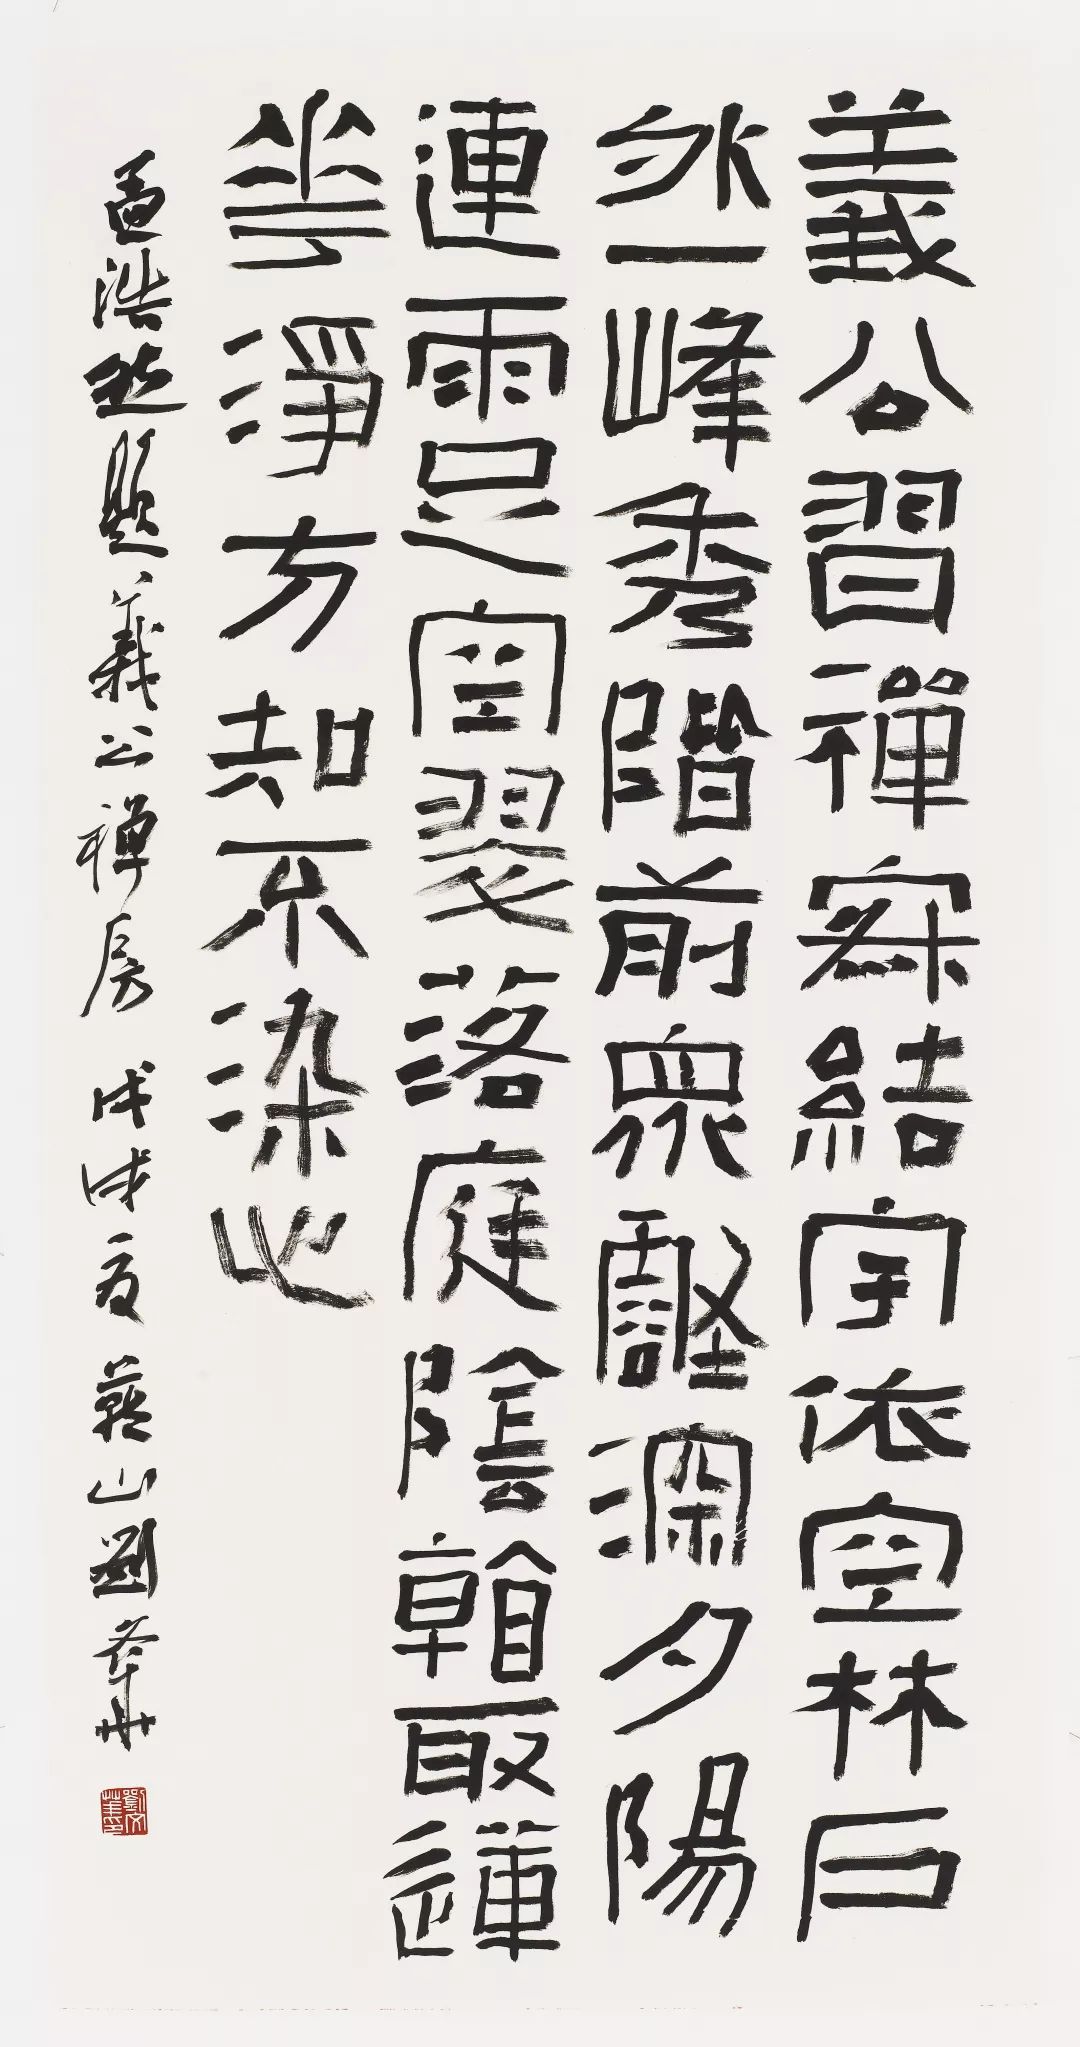 義公習禪寂結宇依空林戶
外一峰秀階前衆壑深夕陽
連雨足空翠落庭陰看取蓮
花淨方知不染心
孟浩然題義公禪房 戊戌夏 蘇山劉華